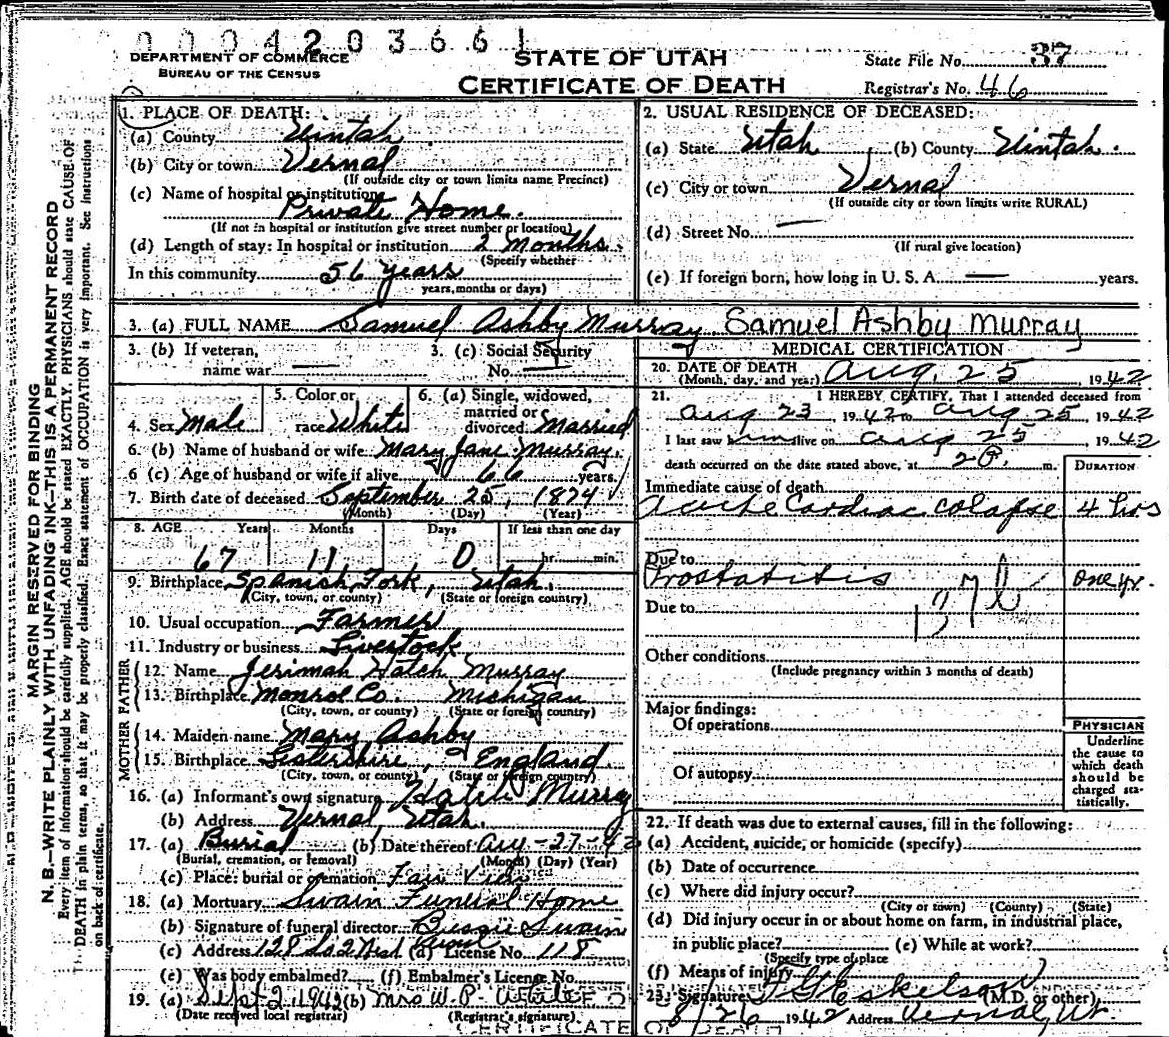 0004203661
DEPARTMENT OF COMMERCE
BUREAU OF THE CENSUS
STATE OF UTAH
CERTIFICATE OF DEATH
State File No. 37
Registrar's No. 46
MARGIN RESERVED FOR BINDING
N. B.—WRITE PLAINLY WITH UNFADING INK—THIS IS A PERMANENT RECORD
Every item of information should be carefully supplied. AGE should be stated EXACTLY. PHYSICIANS should state CAUSE OF
DEATH in plain terms, so that it may be properly classified. Exact statement of OCCUPATION is very important. See instructions
on back of certificate.
1. PLACE OF DEATH:
(a) County Uintah
(b) City or town Vernal
(If outside city or town limits name Precinct)
(c) Name of hospital or institution
Private Home.
(If not in hospital or institution give street number or location)
(d) Length of stay: In hospital or institution 2 months.
(Specify whether
In this community 56 years
years, months or days)
2. USUAL RESIDENCE OF DECEASED:
(a) State Utah (b) County Uintah.
(c) City or town Vernal
(If outside city or town limits write RURAL)
(d) Street No. —
(If rural give location)
(e) If foreign born, how long in U. S. A. — years.
3. (a) FULL NAME Samuel Ashby Murray Samuel Ashby Murray
3. (b) If veteran,
name war —
3. (c) Social Security
No. —
4. Sex Male
5. Color or
race White
6. (a) Single, widowed,
married or
divorced Married
6. (b) Name of husband or wife Mary Jane Murray.
6 (c) Age of husband or wife if alive 66 years.
7. Birth date of deceased September 25, 1874
(Month) (Day) (Year)
8. AGE Years Months Days If less than one day
67 11 0 hr. min.
9. Birthplace Spanish Fork, Utah.
(City, town, or county) (State or foreign country)
10. Usual occupation Farmer
11. Industry or business Livestock
FATHER
12. Name Jerimah Hatch Murray
13. Birthplace Monroe Co. Michigan
(City, town, or county) (State or foreign country)
MOTHER
14. Maiden name Mary Ashby
15. Birthplace Lestershire, England
(City, town, or county) (State or foreign country)
16. (a) Informant's own signature Hatch Murray
(b) Address Vernal Utah.
17. (a) Burial (b) Date thereof Aug-27-42
(Burial, cremation, or removal) (Month) (Day) (Year)
(c) Place: burial or cremation Fair View
18. (a) Mortuary Swain Funeral Home
(b) Signature of funeral director Bessie Swain
(c) Address 128 So 2 West Vernal (d) License No. 118
(e) Was body embalmed? (f) Embalmer's License No.
19. (a) Sept 2 1942 (b) Mrs W. P. White
(Date received local registrar) (Registrar's signature)
MEDICAL CERTIFICATION
20. DATE OF DEATH
(Month, day, and year) Aug. 25, 1942
21. I HEREBY CERTIFY, That I attended deceased from
Aug 23 1942 to Aug 25, 1942
I last saw him alive on Aug 25, 1942
death occurred on the date stated above, at 2 P. m.
DURATION
Immediate cause of death
Acute Cardiac colapse 4 hrs
Due to
Prostatitis one yr.
137 b
Due to
Other conditions
(Include pregnancy within 3 months of death)
Major findings:
Of operations
Of autopsy
PHYSICIAN
Underline
the cause to
which death
should be
charged sta-
tistically.
22. If death was due to external causes, fill in the following:
(a) Accident, suicide, or homicide (specify)
(b) Date of occurrence
(c) Where did injury occur?
(City or town) (County) (State)
(d) Did injury occur in or about home on farm, in industrial place,
in public place? (e) While at work?
(Specify type of place
(f) Means of injury
23. Signature T G Eskelson (M.D. or other)
8/26 1942 Address Vernal, Ut.
CERTIFICATE OF DEATH